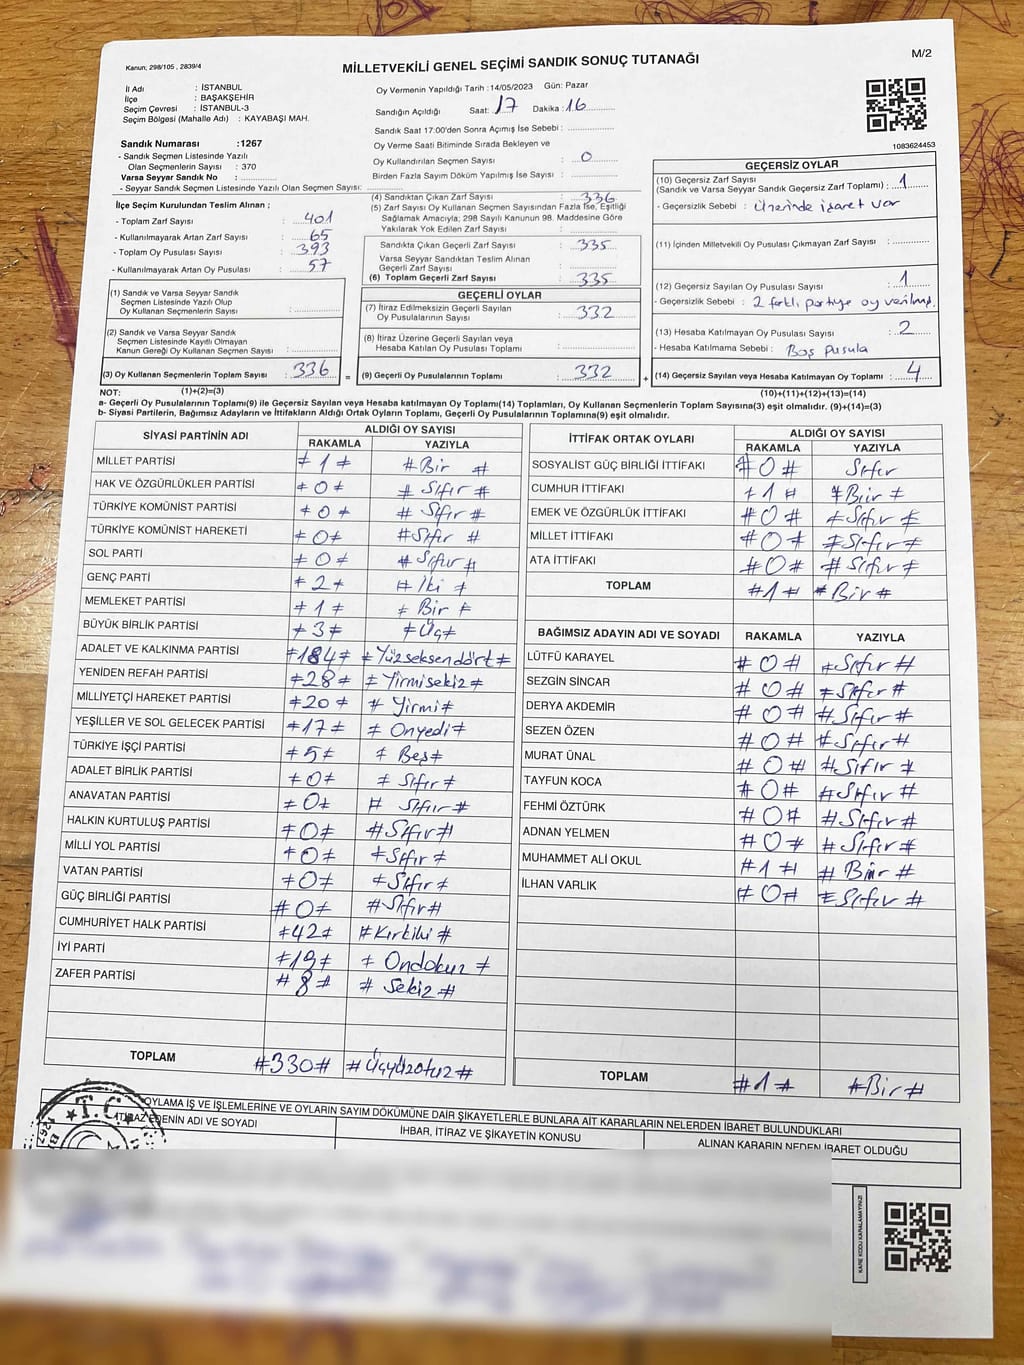 M/2
Kanun; 298/105 , 2839/4
MİLLETVEKİLİ GENEL SEÇİMİ SANDIK SONUÇ TUTANAĞI
İl Adı : İSTANBUL
İlçe : BAŞAKŞEHİR
Seçim Çevresi : İSTANBUL-3
Seçim Bölgesi (Mahalle Adı) : KAYABAŞI MAH.
Sandık Numarası :1267
- Sandık Seçmen Listesinde Yazılı
Olan Seçmenlerin Sayısı : 370
Varsa Seyyar Sandık No :
- Seyyar Sandık Seçmen Listesinde Yazılı Olan Seçmen Sayısı:
İlçe Seçim Kurulundan Teslim Alınan ;
- Toplam Zarf Sayısı : 401
- Kullanılmayarak Artan Zarf Sayısı : 65
- Toplam Oy Pusulası : 393
- Kullanılmayarak Artan Oy Pusulası : 57
(1) Sandık ve Varsa Seyyar Sandık
Seçmen Listesinde Yazılı Olup
Oy Kullanan Seçmenlerin Sayısı :
(2) Sandık ve Varsa Seyyar Sandık
Seçmen Listesinde Kayıtlı Olmayan
Kanun Gereği Oy Kullanan Seçmen Sayısı :
(3) Oy Kullanan Seçmenlerin Toplam Sayısı : 336 =
(1)+(2)=(3)
Oy Vermenin Yapıldığı Tarih :14/05/2023 Gün: Pazar
Sandığın Açıldığı Saat: 17 Dakika : 16
Sandık Saat 17:00'den Sonra Açımış İse Sebebi :
Oy Verme Saati Bitiminde Sırada Bekleyen ve
Oy Kullandırılan Seçmen Sayısı : 0
Birden Fazla Sayım Döküm Yapılmış İse Sayısı :
(4) Sandıktan Çıkan Zarf Sayısı : 336
(5) Zarf Sayısı Oy Kullanan Seçmen Sayısından Fazla İse, Eşitliği
Sağlamak Amacıyla; 298 Sayılı Kanunun 98. Maddesine Göre
Yakılarak Yok Edilen Zarf Sayısı :
Sandıkta Çıkan Geçerli Zarf Sayısı : 335
Varsa Seyyar Sandıktan Teslim Alınan
Geçerli Zarf Sayısı :
(6) Toplam Geçerli Zarf Sayısı : 335
GEÇERLİ OYLAR
(7) İtiraz Edilmeksizin Geçerli Sayılan
Oy Pusulalarının Sayısı : 332
(8) İtiraz Üzerine Geçerli Sayılan veya
Hesaba Katılan Oy Pusulası Toplamı :
(9) Geçerli Oy Pusulalarının Toplamı : 332 +
1083624453
GEÇERSİZ OYLAR
(10) Geçersiz Zarf Sayısı
(Sandık ve Varsa Seyyar Sandık Geçersiz Zarf Toplamı) : 1
- Geçersizlik Sebebi : Üzerinde işaret var
(11) İçinden Milletvekili Oy Pusulası Çıkmayan Zarf Sayısı :
(12) Geçersiz Sayılan Oy Pusulası Sayısı : 1
- Geçersizlik Sebebi : 2 farklı partiye oy verilmiş.
(13) Hesaba Katılmayan Oy Pusulası Sayısı : 2
- Hesaba Katılmama Sebebi : Boş pusula
(14) Geçersiz Sayılan veya Hesaba Katılmayan Oy Toplamı : 4
(10)+(11)+(12)+(13)=(14)
NOT:
a- Geçerli Oy Pusulalarının Toplamı(9) ile Geçersiz Sayılan veya Hesaba katılmayan Oy Toplamı(14) Toplamları, Oy Kullanan Seçmenlerin Toplam Sayısına(3) eşit olmalıdır. (9)+(14)=(3)
b- Siyasi Partilerin, Bağımsız Adayların ve İttifakların Aldığı Ortak Oyların Toplamı, Geçerli Oy Pusulalarının Toplamına(9) eşit olmalıdır.
SİYASİ PARTİNİN ADI ALDIĞI OY SAYISI
RAKAMLA YAZIYLA
MİLLET PARTİSİ # 1 # # Bir #
HAK VE ÖZGÜRLÜKLER PARTİSİ # 0 # # Sıfır #
TÜRKİYE KOMÜNİST PARTİSİ # 0 # # Sıfır #
TÜRKİYE KOMÜNİST HAREKETİ # 0 # # Sıfır #
SOL PARTİ # 0 # # Sıfır #
GENÇ PARTİ # 2 # # İki #
MEMLEKET PARTİSİ # 1 # # Bir #
BÜYÜK BİRLİK PARTİSİ # 3 # # Üç #
ADALET VE KALKINMA PARTİSİ #184# #Yüzseksendört#
YENİDEN REFAH PARTİSİ #28# # Yirmisekiz #
MİLLİYETÇİ HAREKET PARTİSİ #20# # Yirmi #
YEŞİLLER VE SOL GELECEK PARTİSİ #17# # Onyedi #
TÜRKİYE İŞÇİ PARTİSİ # 5 # # Beş #
ADALET BİRLİK PARTİSİ # 0 # # Sıfır #
ANAVATAN PARTİSİ # 0 # # Sıfır #
HALKIN KURTULUŞ PARTİSİ # 0 # # Sıfır #
MİLLİ YOL PARTİSİ # 0 # # Sıfır #
VATAN PARTİSİ # 0 # # Sıfır #
GÜÇ BİRLİĞİ PARTİSİ # 0 # # Sıfır #
CUMHURİYET HALK PARTİSİ #42# # Kırkiki #
İYİ PARTİ #19# # Ondokuz #
ZAFER PARTİSİ # 8 # # Sekiz #
TOPLAM #330# #Üçyüzotuz #
İTTİFAK ORTAK OYLARI ALDIĞI OY SAYISI
RAKAMLA YAZIYLA
SOSYALİST GÜÇ BİRLİĞİ İTTİFAKI # 0 # Sıfır
CUMHUR İTTİFAKI # 1 # # Bir #
EMEK VE ÖZGÜRLÜK İTTİFAKI # 0 # # Sıfır #
MİLLET İTTİFAKI # 0 # # Sıfır #
ATA İTTİFAKI # 0 # # Sıfır #
TOPLAM # 1 # # Bir #
BAĞIMSIZ ADAYIN ADI VE SOYADI RAKAMLA YAZIYLA
LÜTFÜ KARAYEL # 0 # # Sıfır #
SEZGİN SİNCAR # 0 # # Sıfır #
DERYA AKDEMİR # 0 # # Sıfır #
SEZEN ÖZEN # 0 # # Sıfır #
MURAT ÜNAL # 0 # # Sıfır #
TAYFUN KOCA # 0 # # Sıfır #
FEHMİ ÖZTÜRK # 0 # # Sıfır #
ADNAN YELMEN # 0 # # Sıfır #
MUHAMMET ALİ OKUL # 1 # # Bir #
İLHAN VARLIK # 0 # # Sıfır #
TOPLAM # 1 # # Bir #
OYLAMA İŞ VE İŞLEMLERİNE VE OYLARIN SAYIM DÖKÜMÜNE DAİR ŞİKAYETLERLE BUNLARA AİT KARARLARIN NELERDEN İBARET BULUNDUKLARI
İTİRAZ EDENİN ADI VE SOYADI
İHBAR, İTİRAZ VE ŞİKAYETİN KONUSU
ALINAN KARARIN NEDEN İBARET OLDUĞU
T.C.
KARE KODU KARALAMAYINIZ!